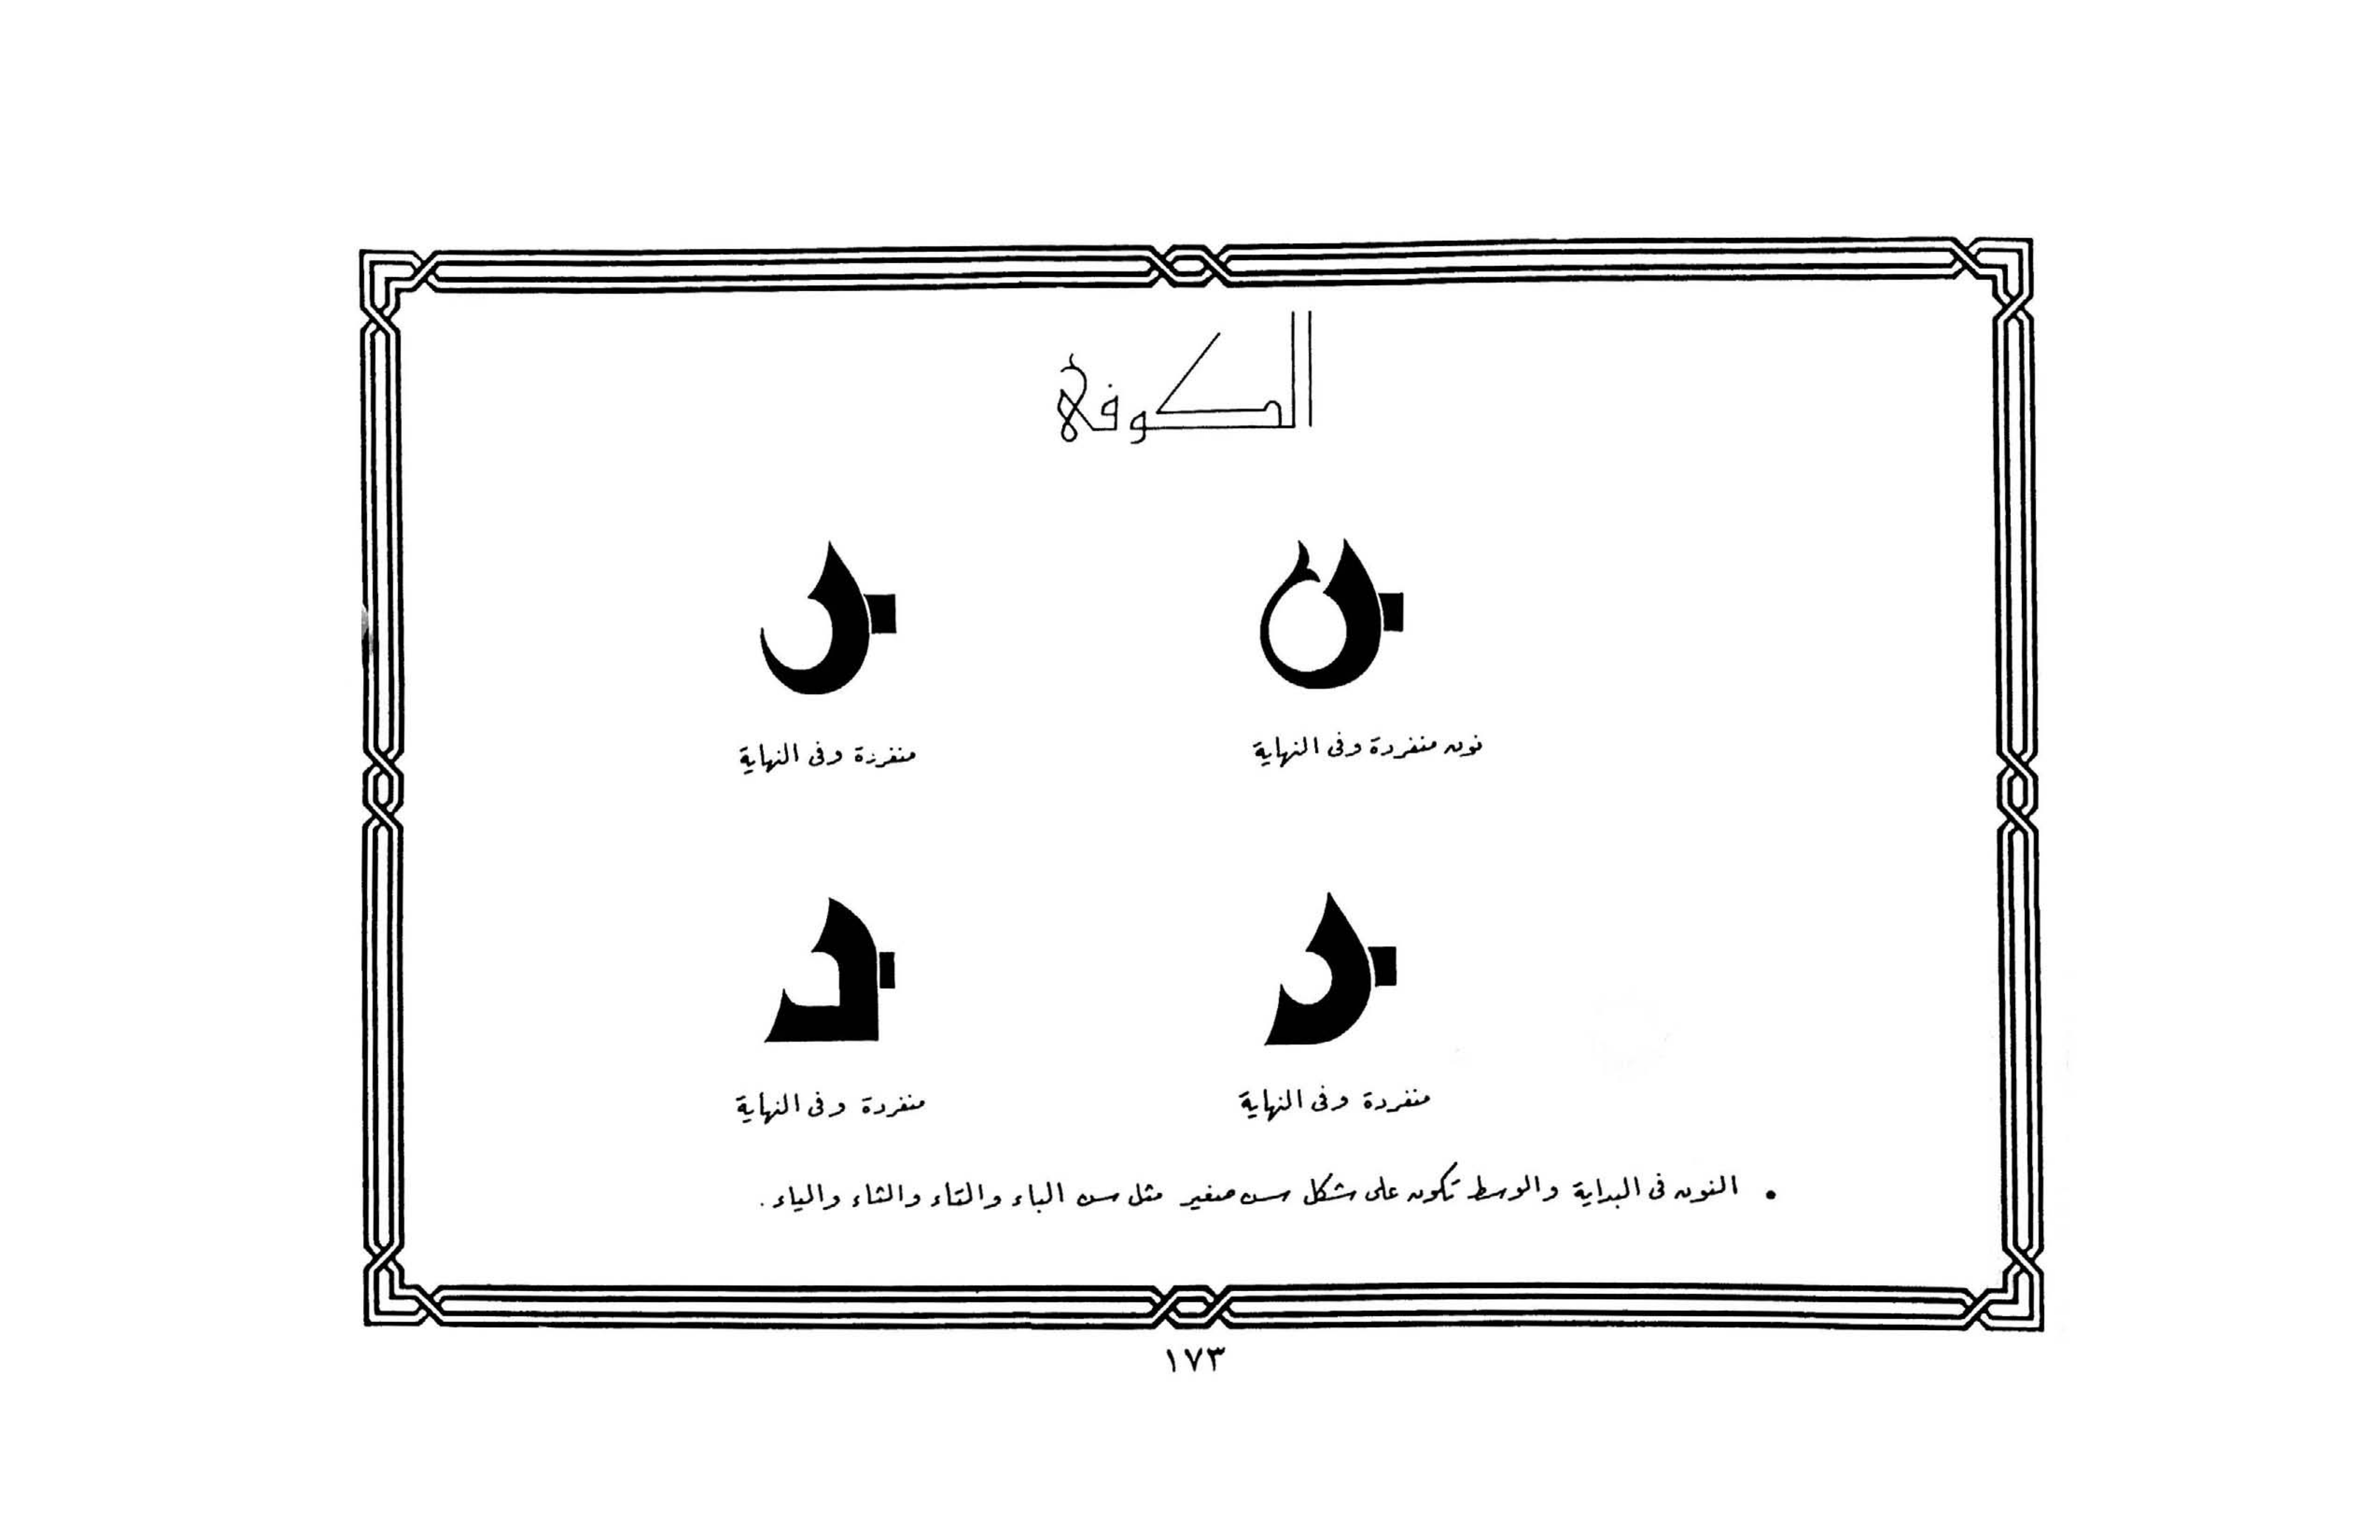 الكوفي
نون منفردة وفى النهاية
منفردة وفى النهاية
منفردة وفى النهاية
منفردة وفى النهاية
• النون فى البداية والوسط تكون على شكل سن صغير مثل سن الباء والتاء والثاء والياء.
١٧٣